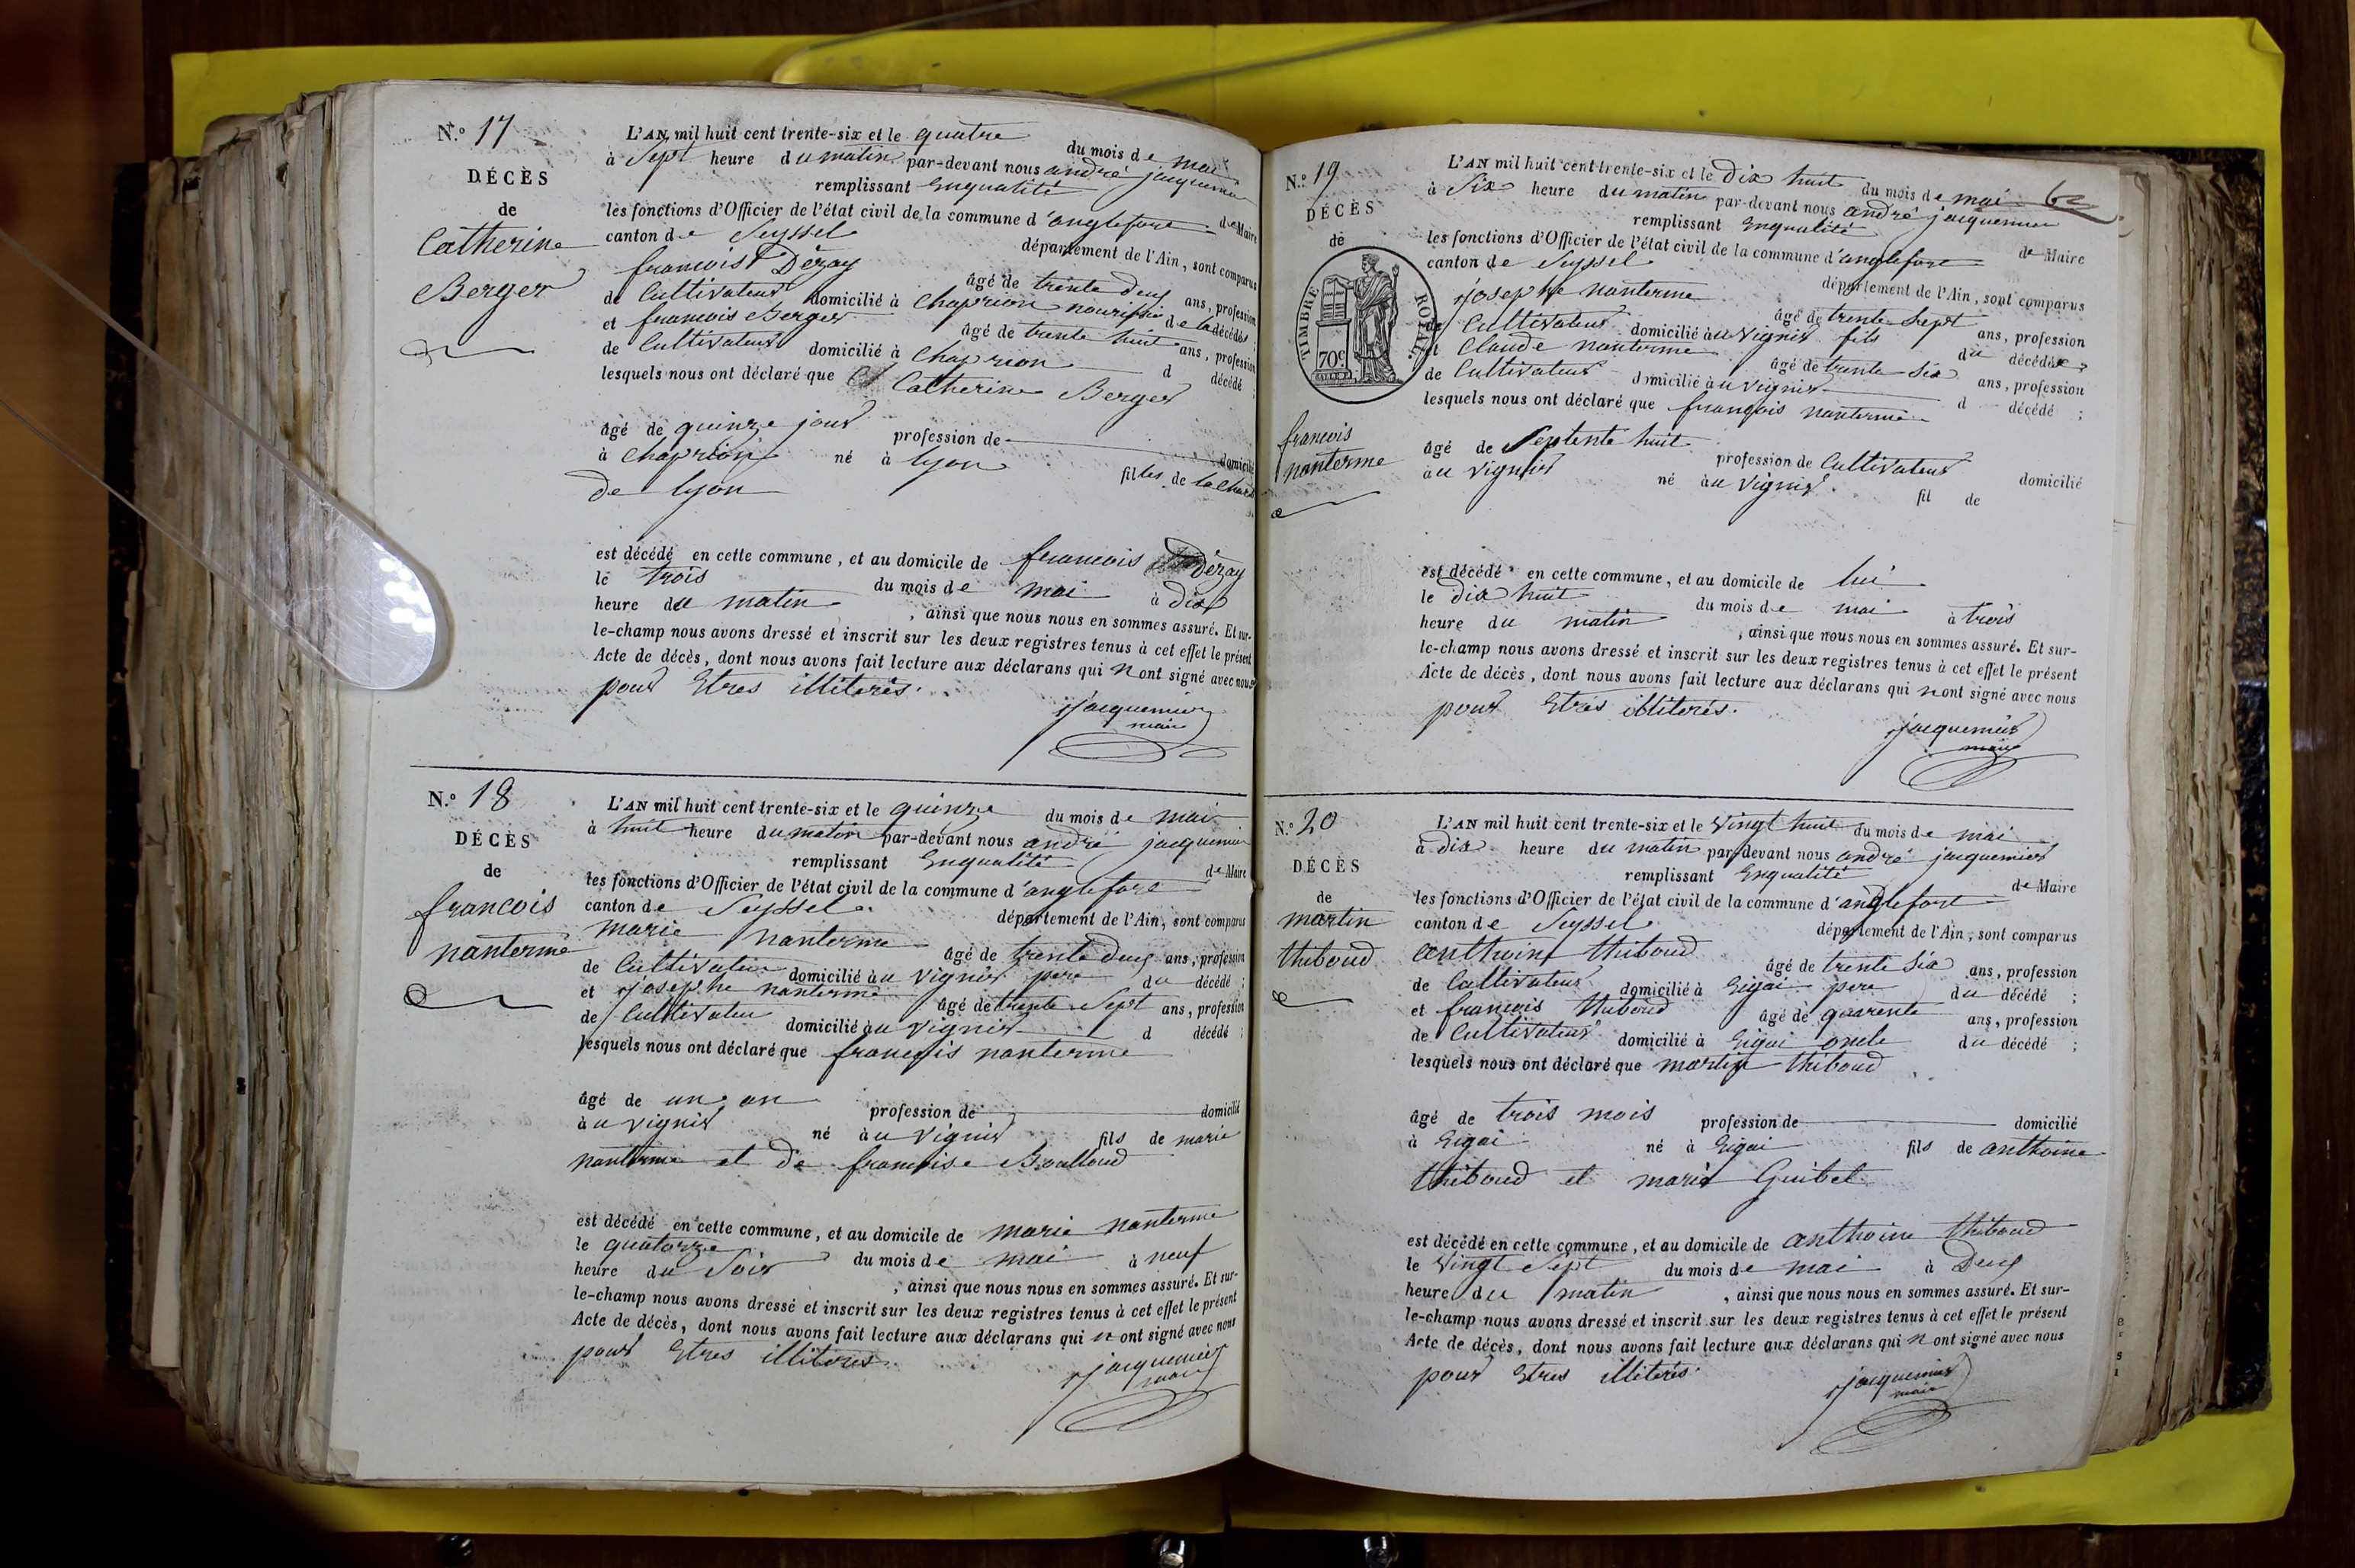 N.º 17
DÉCÈS
de
Catherine
Berger
L'AN mil huit cent trente-six et le quatre du mois de mai
à Sept heure du matin par-devant nous andré jacquemier
remplissant Enqualité de Maire
les fonctions d'Officier de l'état civil de la commune d'anglefort
canton de Seyssel département de l'Ain, sont comparus
francois Déray âgé de trente deux ans, profession
de Cultivateur domicilié à Chaprion nourissié de la décédé ;
et francois Berger âgé de trente huit ans, profession
de Cultivateur domicilié à Chaprion d décédé ;
lesquels nous ont déclaré que Catherine Berger
âgé de quinze jour profession de domicilié
à Chaprion né à lyon filles de la Char
de lyon
est décédé en cette commune, et au domicile de francois Déray
le trois du mois de mai à dix
heure du matin , ainsi que nous nous en sommes assuré. Et sur-
le-champ nous avons dressé et inscrit sur les deux registres tenus à cet effet le présent
Acte de décès, dont nous avons fait lecture aux déclarans qui n'ont signé avec nous
pour Etres illiterés.
jacquemier
maire
N.º 18
DÉCÈS
de
francois
nanterme
L'AN mil huit cent trente-six et le quinze du mois de mai
à huit heure du matin par-devant nous andré jacquemier
remplissant Enqualité de Maire
les fonctions d'Officier de l'état civil de la commune d'anglefort
canton de Seyssel département de l'Ain, sont comparus
marie nanterme âgé de trente deux ans, profession
de Cultivateur domicilié au vignier pere du décédé ;
et josephe nanterme âgé de trente Sept ans, profession
de Cultivateur domicilié au vignier d décédé ;
lesquels nous ont déclaré que françois nanterme
âgé de un an profession de domicilié
au vignier né au vignier fils de marie
nanterme et de francoise Boulloud
est décédé en cette commune, et au domicile de marie nanterme
le quatorze du mois de mai à neuf
heure du Soir , ainsi que nous nous en sommes assuré. Et sur-
le-champ nous avons dressé et inscrit sur les deux registres tenus à cet effet le présent
Acte de décès, dont nous avons fait lecture aux déclarans qui n'ont signé avec nous
pour Etres illiteres
jacquemier
maire
N.º 19
DÉCÈS
de
TIMBRE ROYAL.
70c.
francois
nanterme
L'AN mil huit cent trente-six et le Dix huit du mois de mai 62
à Six heure du matin par-devant nous andré jacquemier
remplissant Enqualité de Maire
les fonctions d'Officier de l'état civil de la commune d'anglefort
canton de Seyssel département de l'Ain, sont comparus
josephe nanterme âgé de trente Sept ans, profession
de Cultivateur domicilié au vignier fils du décédé ;
et Claude nanterme âgé de trente Six ans, profession
de Cultivateur domicilié au vignier d décédé ;
lesquels nous ont déclaré que françois nanterme
âgé de Septente huit profession de Cultivateur domicilié
au vignier né au vignier fil de
est décédé en cette commune, et au domicile de lui
le dix huit du mois de mai à trois
heure du matin , ainsi que nous nous en sommes assuré. Et sur-
le-champ nous avons dressé et inscrit sur les deux registres tenus à cet effet le présent
Acte de décès, dont nous avons fait lecture aux déclarans qui n'ont signé avec nous
pour Etres illiterés.
jacquemier
maire
N.º 20
DÉCÈS
de
martin
thiboud
L'AN mil huit cent trente-six et le Vingt huit du mois de mai
à dix heure du matin par-devant nous andré jacquemier
remplissant Enqualité de Maire
les fonctions d'Officier de l'état civil de la commune d'anglefort
canton de Seyssel département de l'Ain, sont comparus
anthoine thiboud âgé de trente Six ans, profession
de Cultivateur domicilié à Gigai pere du décédé ;
et francois thiboud âgé de quarente ans, profession
de Cultivateur domicilié à Gigai oncle du décédé ;
lesquels nous ont déclaré que martin thiboud
âgé de trois mois profession de domicilié
à Gigai né à Gigai fils de anthoine
thiboud et marie Guibel
est décédé en cette commune, et au domicile de anthoine thiboud
le Vingt Sept du mois de mai à Deux
heure du matin , ainsi que nous nous en sommes assuré. Et sur-
le-champ nous avons dressé et inscrit sur les deux registres tenus à cet effet le présent
Acte de décès, dont nous avons fait lecture aux déclarans qui n'ont signé avec nous
pour Etres illiterés.
jacquemier
maire